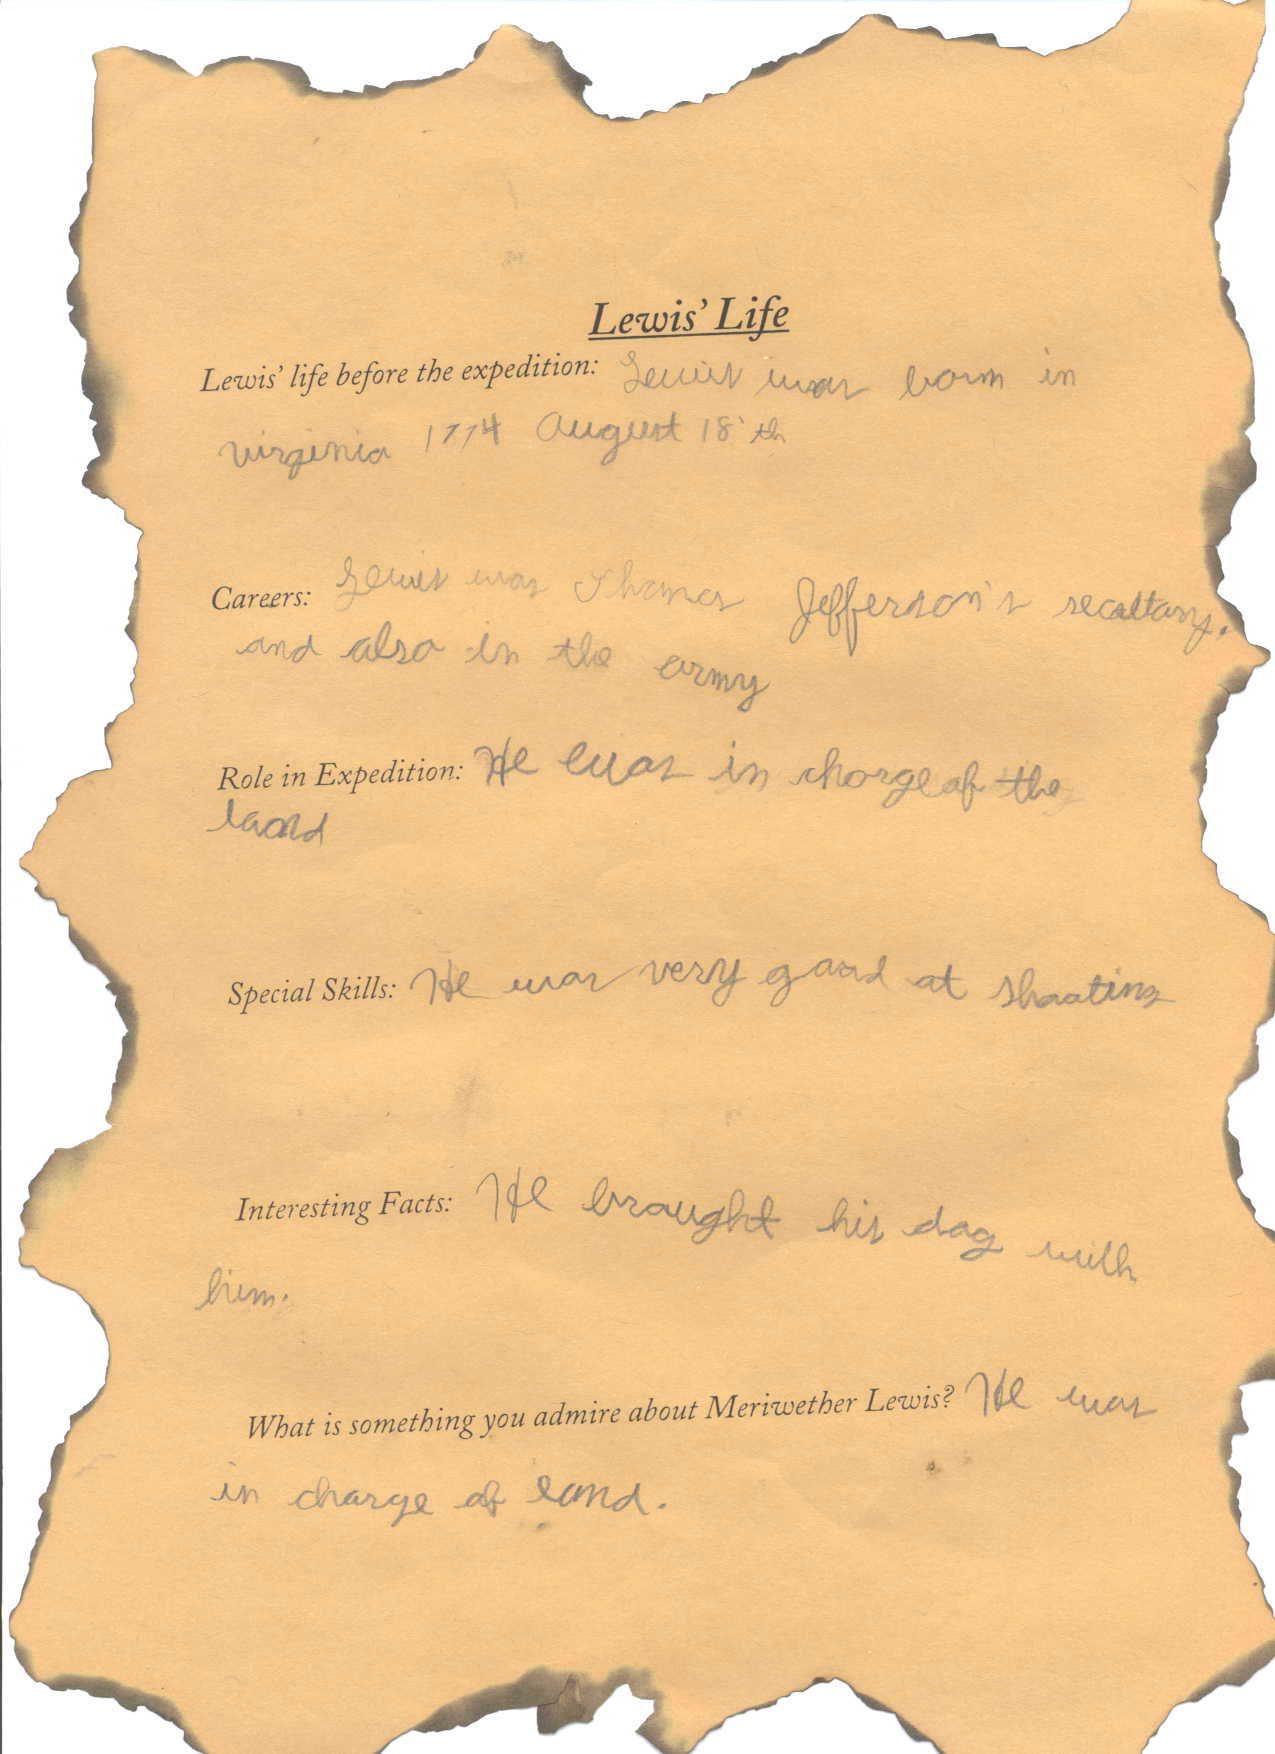 Lewis' Life
Lewis' life before the expedition: Lewis was born in
virginia 1774 August 18th
Careers: Lewis was Thomas Jefferson's secaltary.
and also in the army
Role in Expedition: He was in charge of the
land
Special Skills: He was very good at shooting
Interesting Facts: He brought his dog with
him.
What is something you admire about Meriwether Lewis? He was
in charge of land.